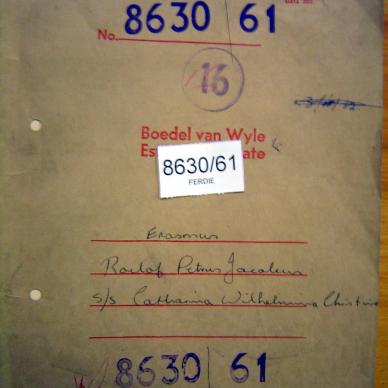 No. 8630 61
16
Boedel van Wyle
8630/61
FERDIE
Erasmus
Roelof Petrus Jacobus
s/s Catharina Wilhelmina Christina
8630 61